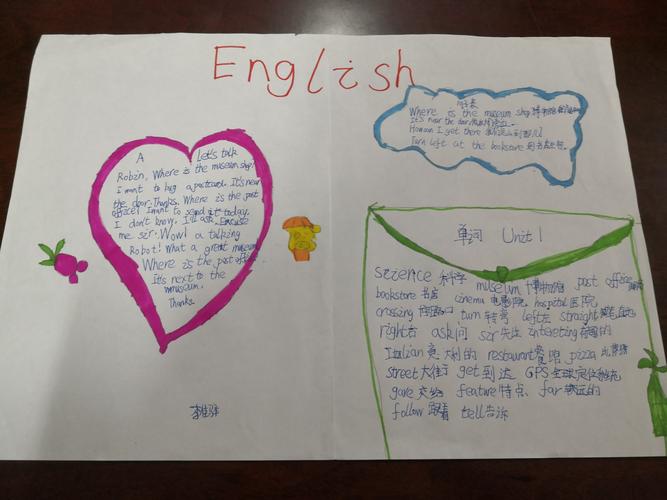 English
A Let's talk
Robin, Where is the museum shop?
I want to buy a postcard. It's near
the door. Thanks. Where is the post
office? I want to send it today.
I don't know. I'll ask. Excuse
me sir. Wow! a talking
Robot! What a great museum
Where is the post office
It's next to the
museum.
Thanks.
李佳骅
Where is the museum shop
It's near the door.
How can I get there
Turn left at the bookstore
单词 Unit 1
science 科学 museum 博物馆 post office 邮局
bookstore 书店 cinema 电影院 hospital 医院
crossing 十字路口 turn 转弯 left 左 straight
right 右 ask 问 sir 先生 interesting 有趣的
Italian 意大利的 restaurant 餐馆 pizza 比萨饼
street 大街 get 到达 GPS 全球定位系统
gave 交给 feature 特点 far 较远的
follow 跟着 tell 告诉